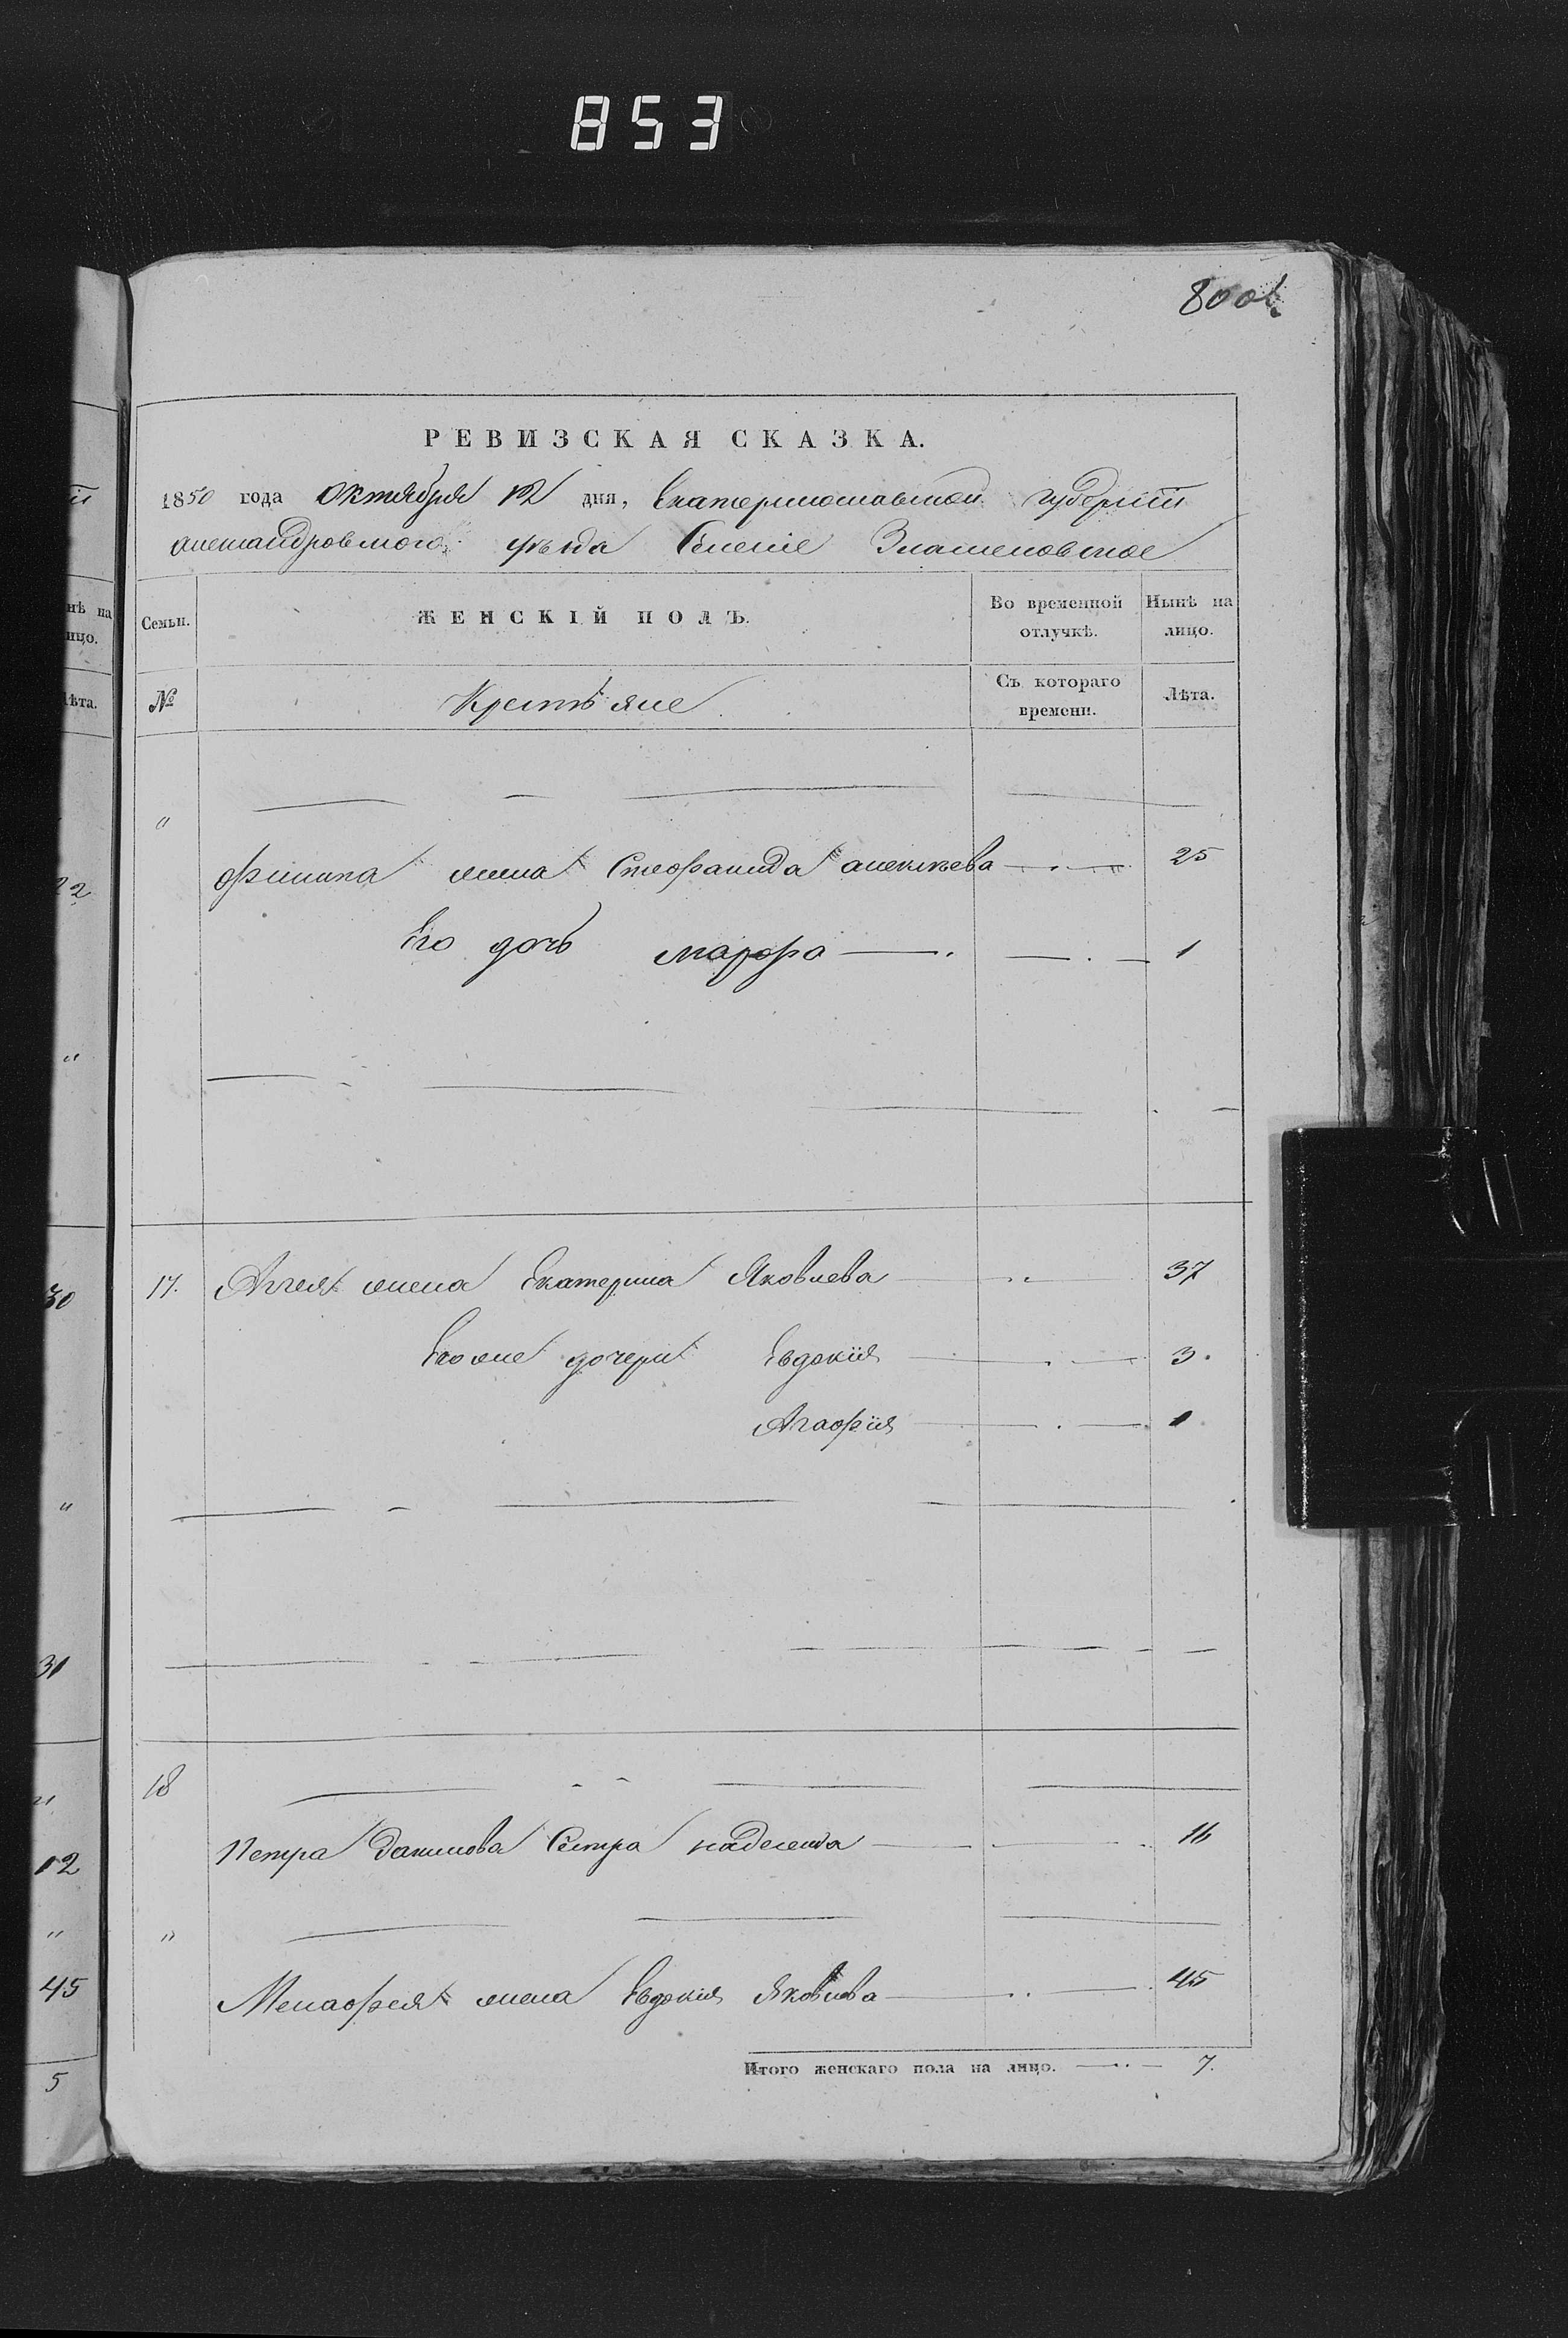 853
800 об.
РЕВИЗСКАЯ СКАЗКА.
1850 года Октября 12 дня, Екатеринославской губерніи
александровского уѣзда Селеніе Знаменовское
Семьи. ЖЕНСКІЙ ПОЛЪ. Во временной отлучкѣ. Нынѣ на лицо.
№ Крестьяне Съ котораго времени. Лѣта.
"
филипа жена Стефанида алексѣева 25
Его дочь марфа 1
17. жена Екатерина Яковлева 37
Его же дочери Евдокія 3.
Агафія 1
18
Петра Данилова Сестра надежда 16
"
жена Евдокія Яковлева 45
Итого женскаго пола на лицо. 7.
нѣ на
ицо.
ѣта.
22
"
30
"
31
12
"
45
5